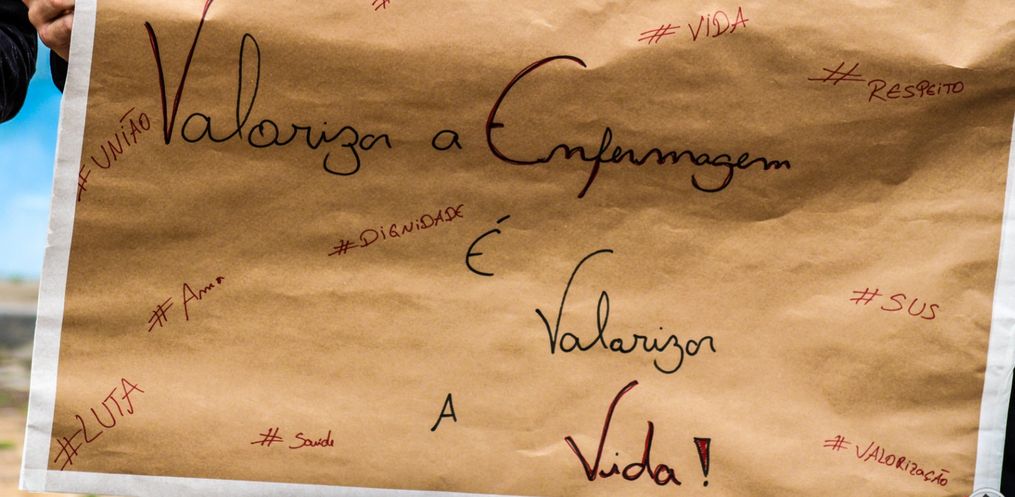 #VIDA
#RESPEITO
#UNIÃO
Valorizar a Enfermagem
#DIGNIDADE
É
#Amor
#SUS
Valorizar
#LUTA
A
#Saúde
Vida!
#VALORIZAÇÃO